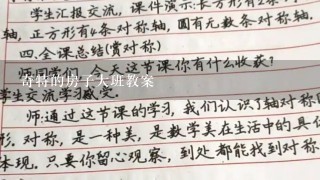 学生汇报交流，课件演示:长方形有2条
轴，正方形有4条对称轴，圆有无数条对称轴.
四.全课总结(赏对称)
天这节课你有什么收获？
奇特的房子大班教案
学生交流学习感受.
师:通过这节课的学习，我们认识了轴对称
形.对称，是一种美，是数学美在生活中的具
体现.只要你留心观察，到处都能找到对称